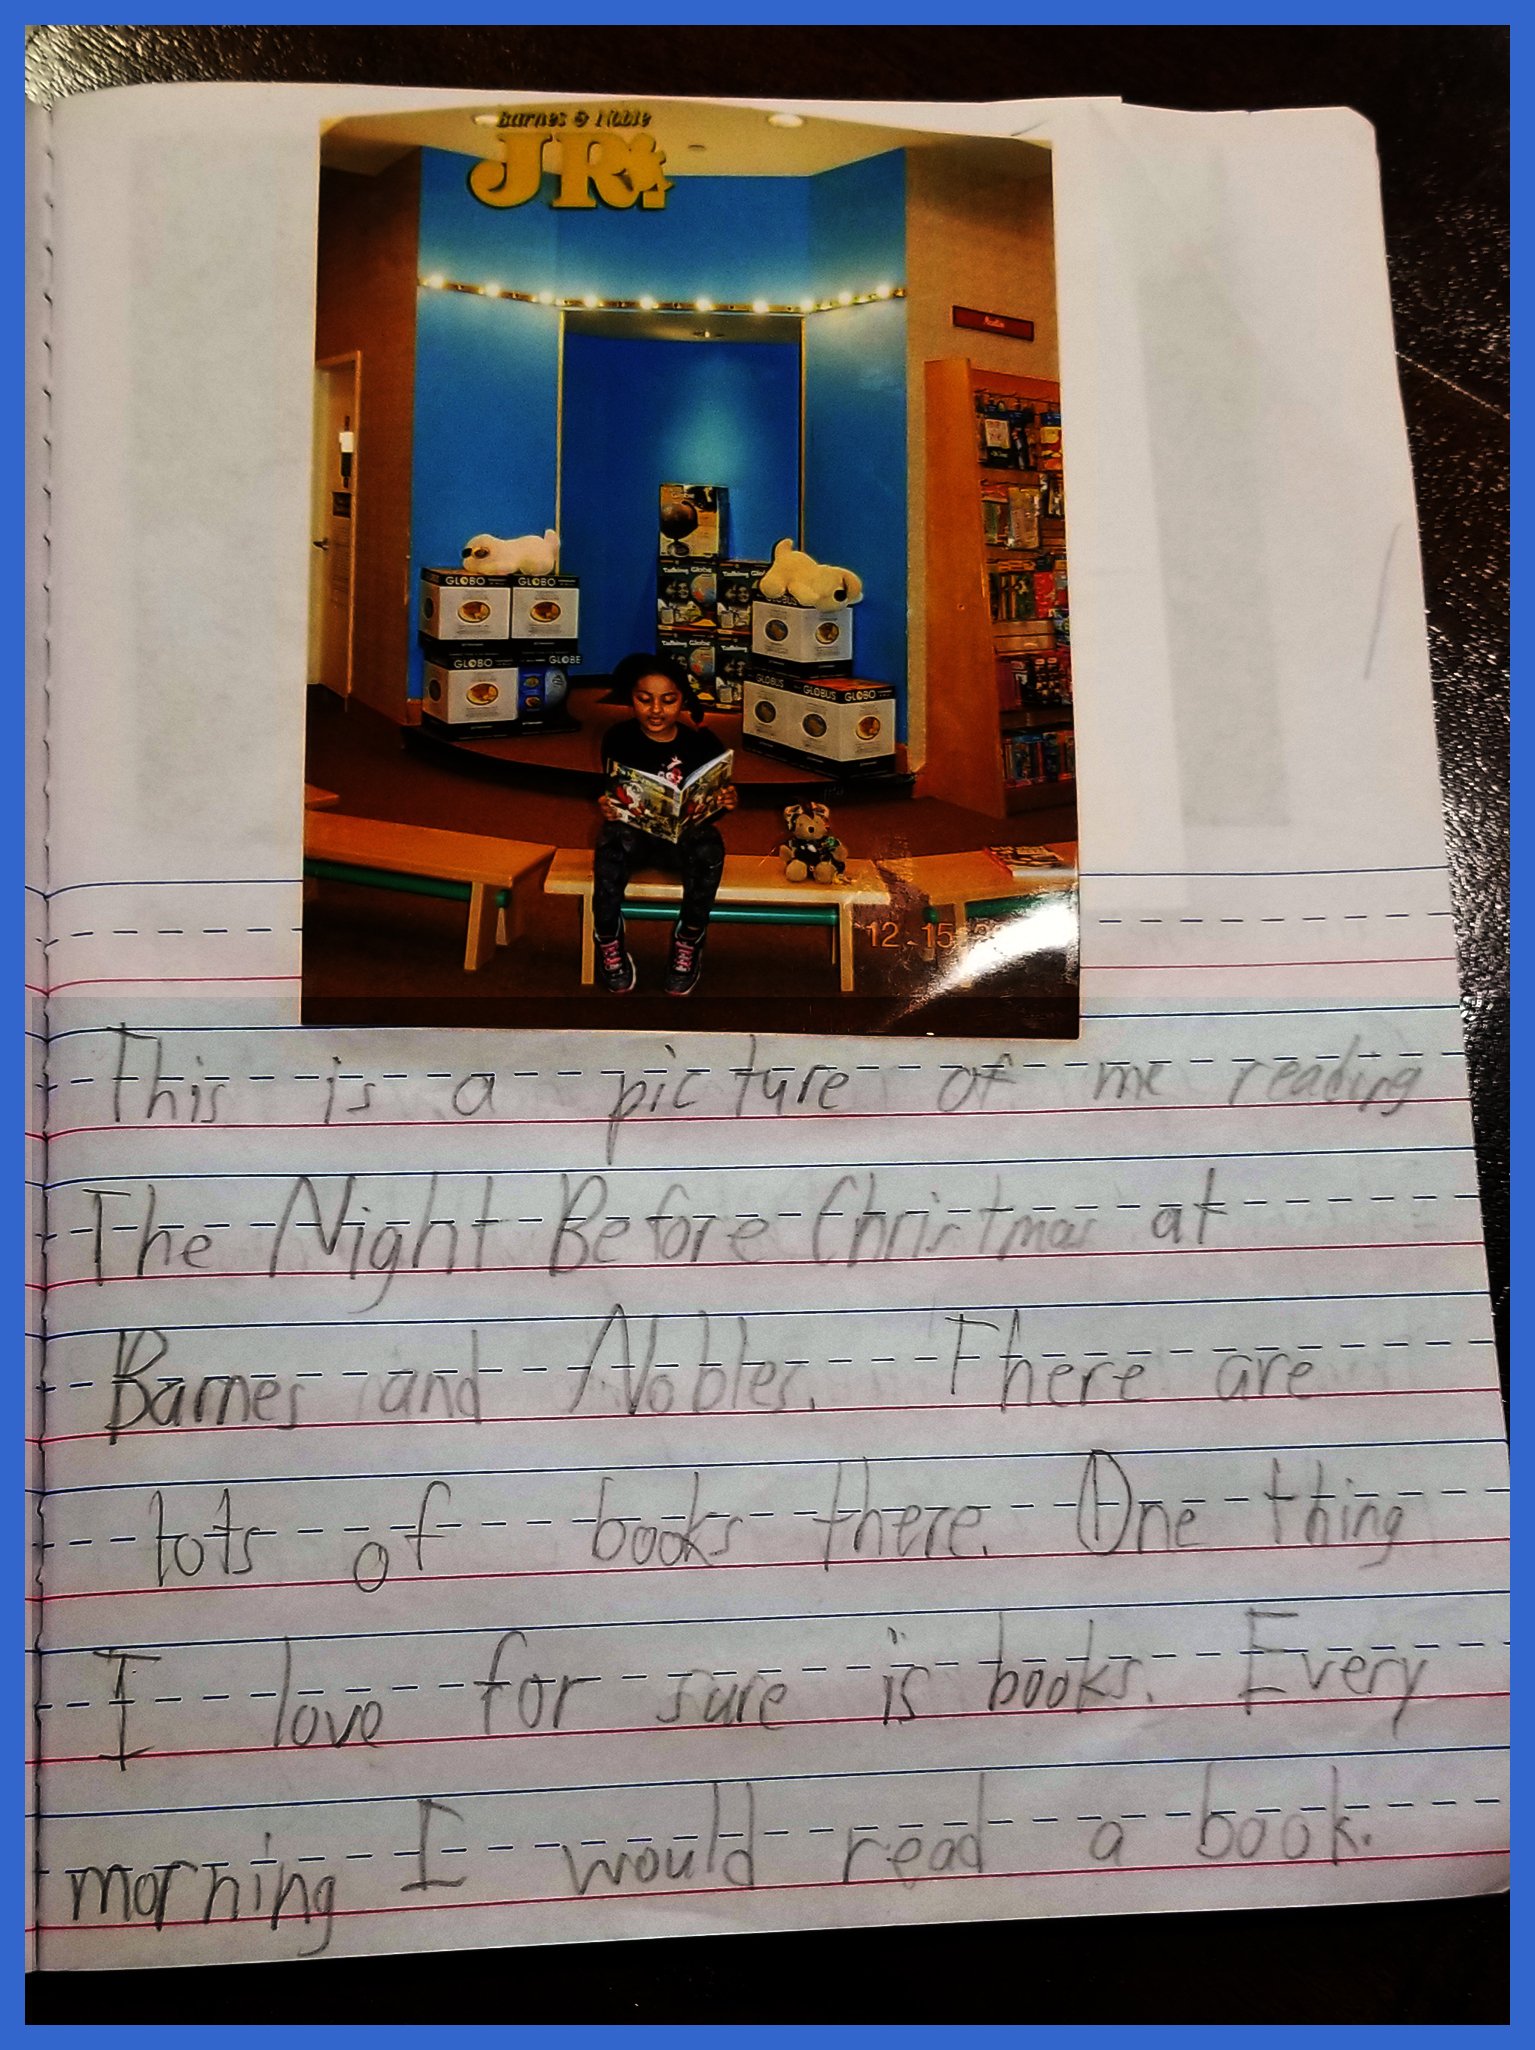 Barnes & Noble
JR.
GLOBO GLOBO
Talking Globe
GLOBO GLOBE
Talking Globe
GLOBUS GLOBUS GLOBO
12 15
This is a picture of me reading
The Night Before Christmas at
Barnes and Nobles. There are
lots of books there. One thing
I love for sure is books. Every
morning I would read a book.